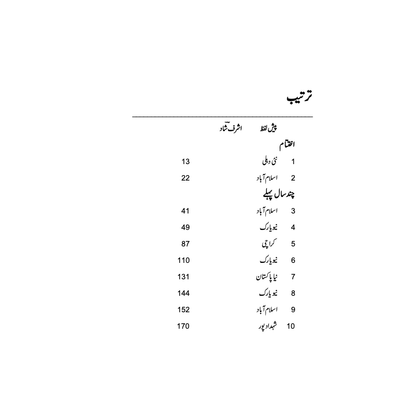 ترتیب
پیش لفظ اشرف شاد
اختتام
1 نئی دہلی 13
2 اسلام آباد 22
چند سال پہلے
3 اسلام آباد 41
4 نیویارک 49
5 کراچی 87
6 نیویارک 110
7 نیا پاکستان 131
8 نیویارک 144
9 اسلام آباد 152
10 شہداد پور 170